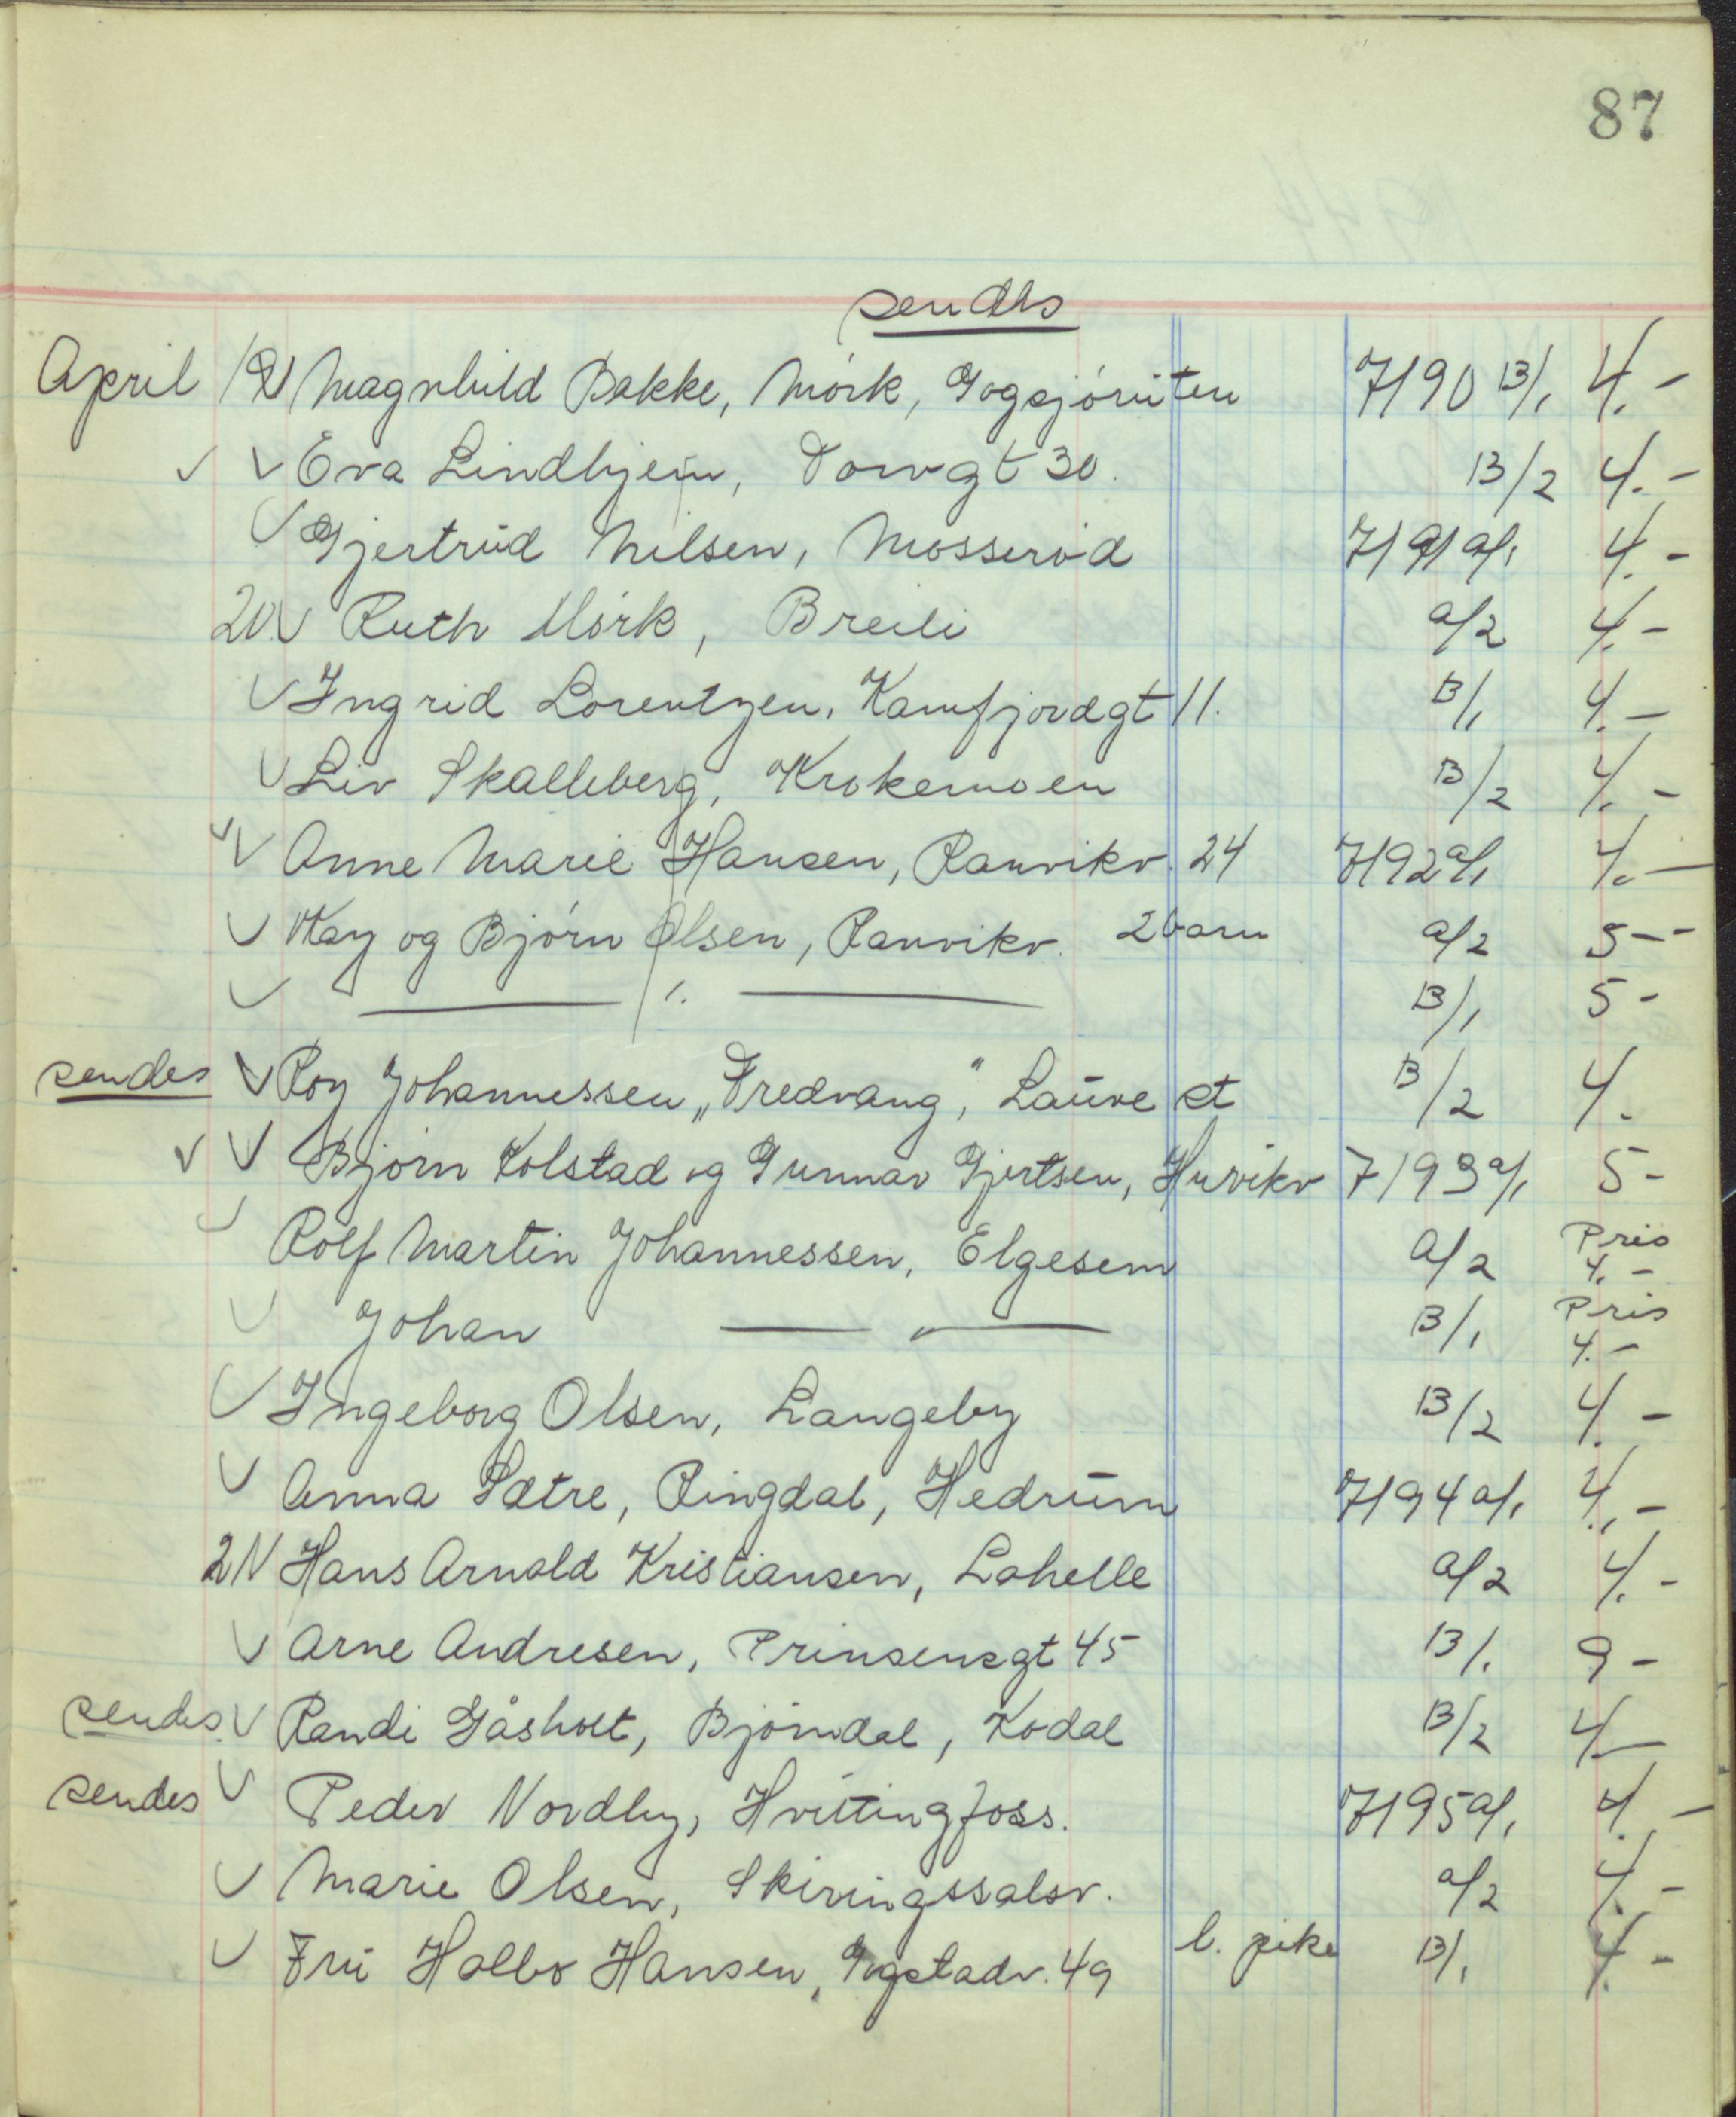 87
sendes
April 19 ✓ Magnhild Bakke, Mörk, Gogsjöruten 7190 B/1 4.-
✓ ✓ Eva Lindhjem, Torvgt 30. B/2 4.-
✓ Gjertrud Nilsen, Mosseröd 7191 a/1 4.-
20. ✓ Ruth Mörk, Breili a/2 4.-
✓ Ingrid Lorentzen, Kamfjordgt 11. B/1 4.-
✓ Liv Skalleberg, Krokemoen B/2 4.-
✓ ✓ Anne Marie Hansen, Ranvikv. 24 7192 a/1 4.-
✓ Kay og Björn Olsen, Ranvikv. 2 barn a/2 5-
✓ — " — B/1 5-
sendes ✓ Roy Johannessen „Fredvang", Lauve st B/2 4.
✓ ✓ Björn Kolstad og Gunnar Gjertsen, Huvikv 7193 a/1 5-
✓ Rolf Martin Johannessen, Elgesem a/2 Pris 4.-
✓ Johan — " — B/1 Pris 4.-
✓ Ingeborg Olsen, Langeby B/2 4.-
✓ Anna Sætre, Ringdal, Hedrum 7194 a/1 4.-
21 ✓ Hans Arnold Kristiansen, Lahelle a/2 4.-
✓ Arne Andresen, Prinsensgt 45 B/1 9-
sendes. ✓ Randi Gåsholt, Björndal, Kodal B/2 4-
sendes ✓ Peder Nordby, Hvittingfoss. 7195 a/1 4.-
✓ Marie Olsen, Skiringssalsv. a/2 4.-
✓ Fru Holbo Hansen, Gogstadv. 49 l. pike B/1 4.-